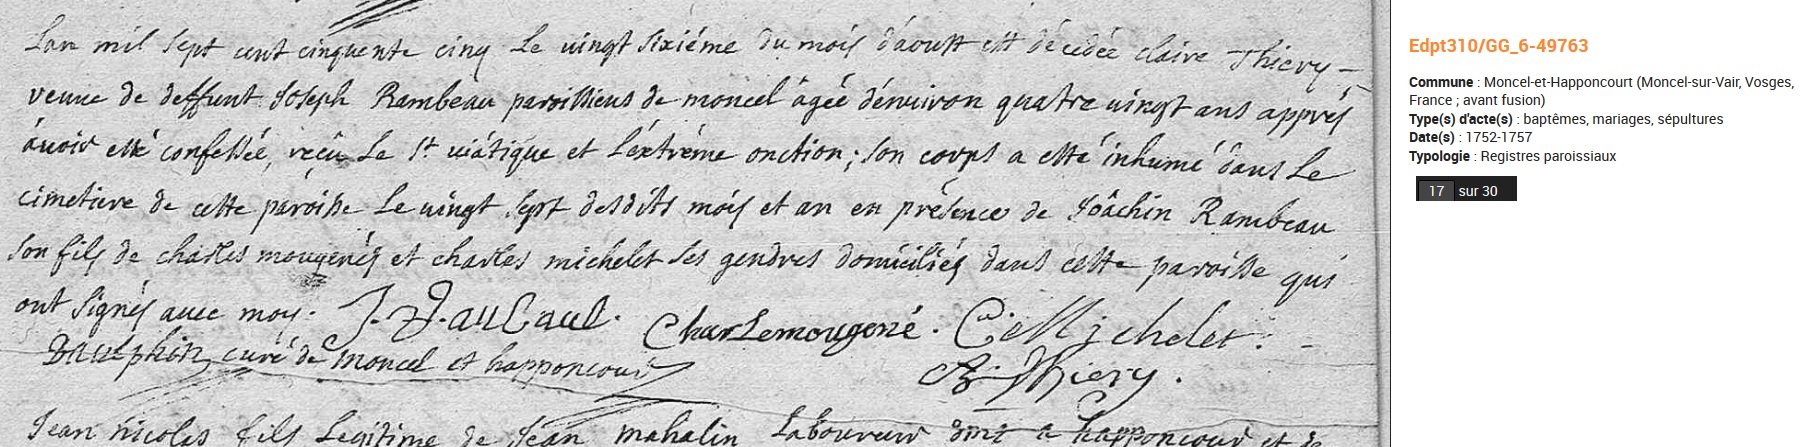 Lan mil sept cent cinquente cinq Le vingt sixiéme du mois d'aoust est décédée claire Thiery –
veuue de deffunt Joseph Rambeau paroissiens de moncel âgeé dénuiron quatre uingt ans apprés
áuoir esté confessée, reçu Le St uiátique et L'éxtréme onction; son corps a esté inhumé dans Le
cimetiere de cette paroisse Le uingt sept desdits mois et an en présence de Joâchin Rambeau
son fils de charles mougenés et charles michelet ses gendres domiciliés dans cette paroisse qui
ont signés auec moy. Charlemougené. C:Michelet.
Dauphin, curé de Moncel et happoncour Thiery.
Jean nicolas fils Legitime de Jean mahalin Laboureur dmt a happoncourt et de
Edpt310/GG_6-49763
Commune : Moncel-et-Happoncourt (Moncel-sur-Vair, Vosges,
France ; avant fusion)
Type(s) d'acte(s) : baptêmes, mariages, sépultures
Date(s) : 1752-1757
Typologie : Registres paroissiaux
17 sur 30